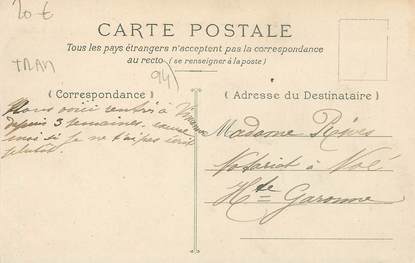 20 €
TRAM
94)
CARTE POSTALE
Tous les pays étrangers n'acceptent pas la correspondance
au recto (se renseigner à la poste)
( Correspondance )
Nous voici rentrés à Vincennes
depuis 3 semaines. excuse
moi si je ne t'ai pas écrit
plutôt.
( Adresse du Destinataire )
Madame
Notariat à Noé
Hte Garonne